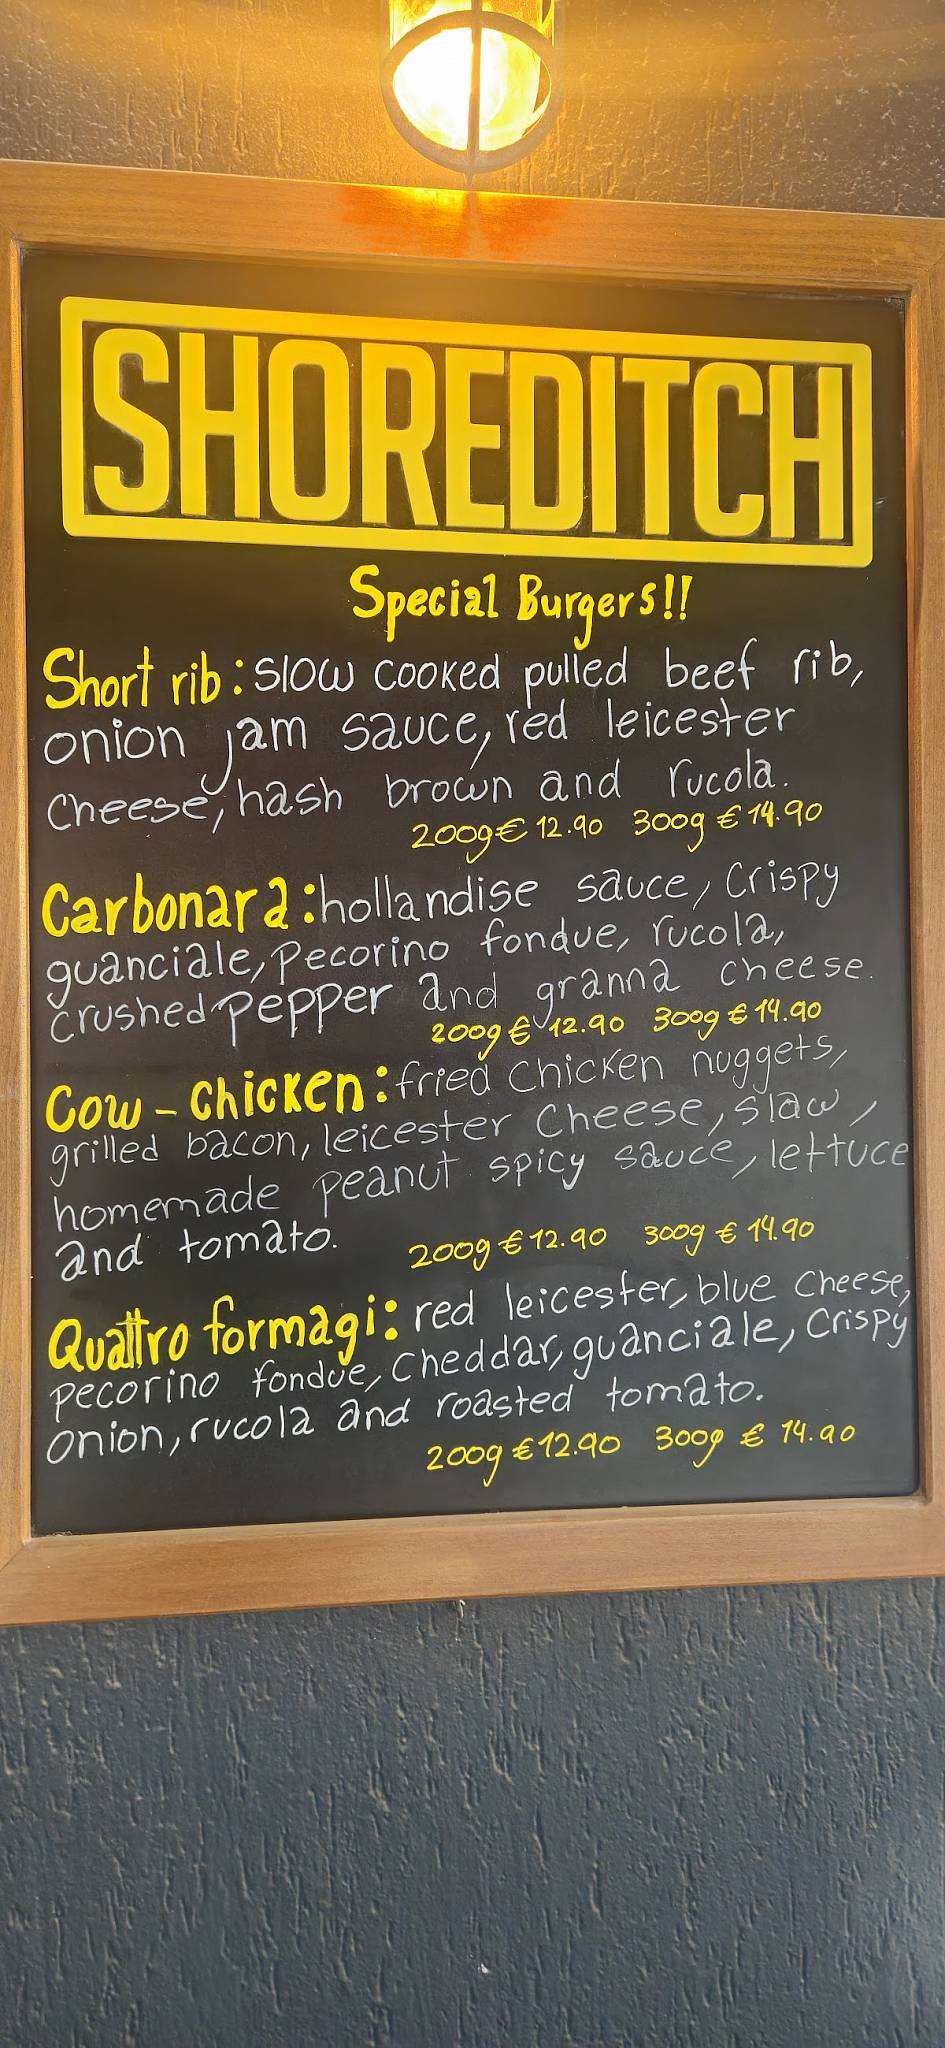 SHOREDITCH
Special Burgers!!
Short rib: slow cooked pulled beef rib,
onion jam sauce, red leicester
cheese, hash brown and rucola.
200g € 12.90 300g € 14.90
Carbonara: hollandise sauce, Crispy
guanciale, Pecorino fondue, rucola,
crushed pepper and granna cheese.
200g € 12.90 300g € 14.90
Cow-chicken: fried chicken nuggets,
grilled bacon, leicester Cheese, slaw,
homemade peanut spicy sauce, lettuce
and tomato.
200g € 12.90 300g € 14.90
Quattro formagi: red leicester, blue cheese,
pecorino fondue, Cheddar, guanciale, Crispy
onion, rucola and roasted tomato.
200g € 12.90 300g € 14.90